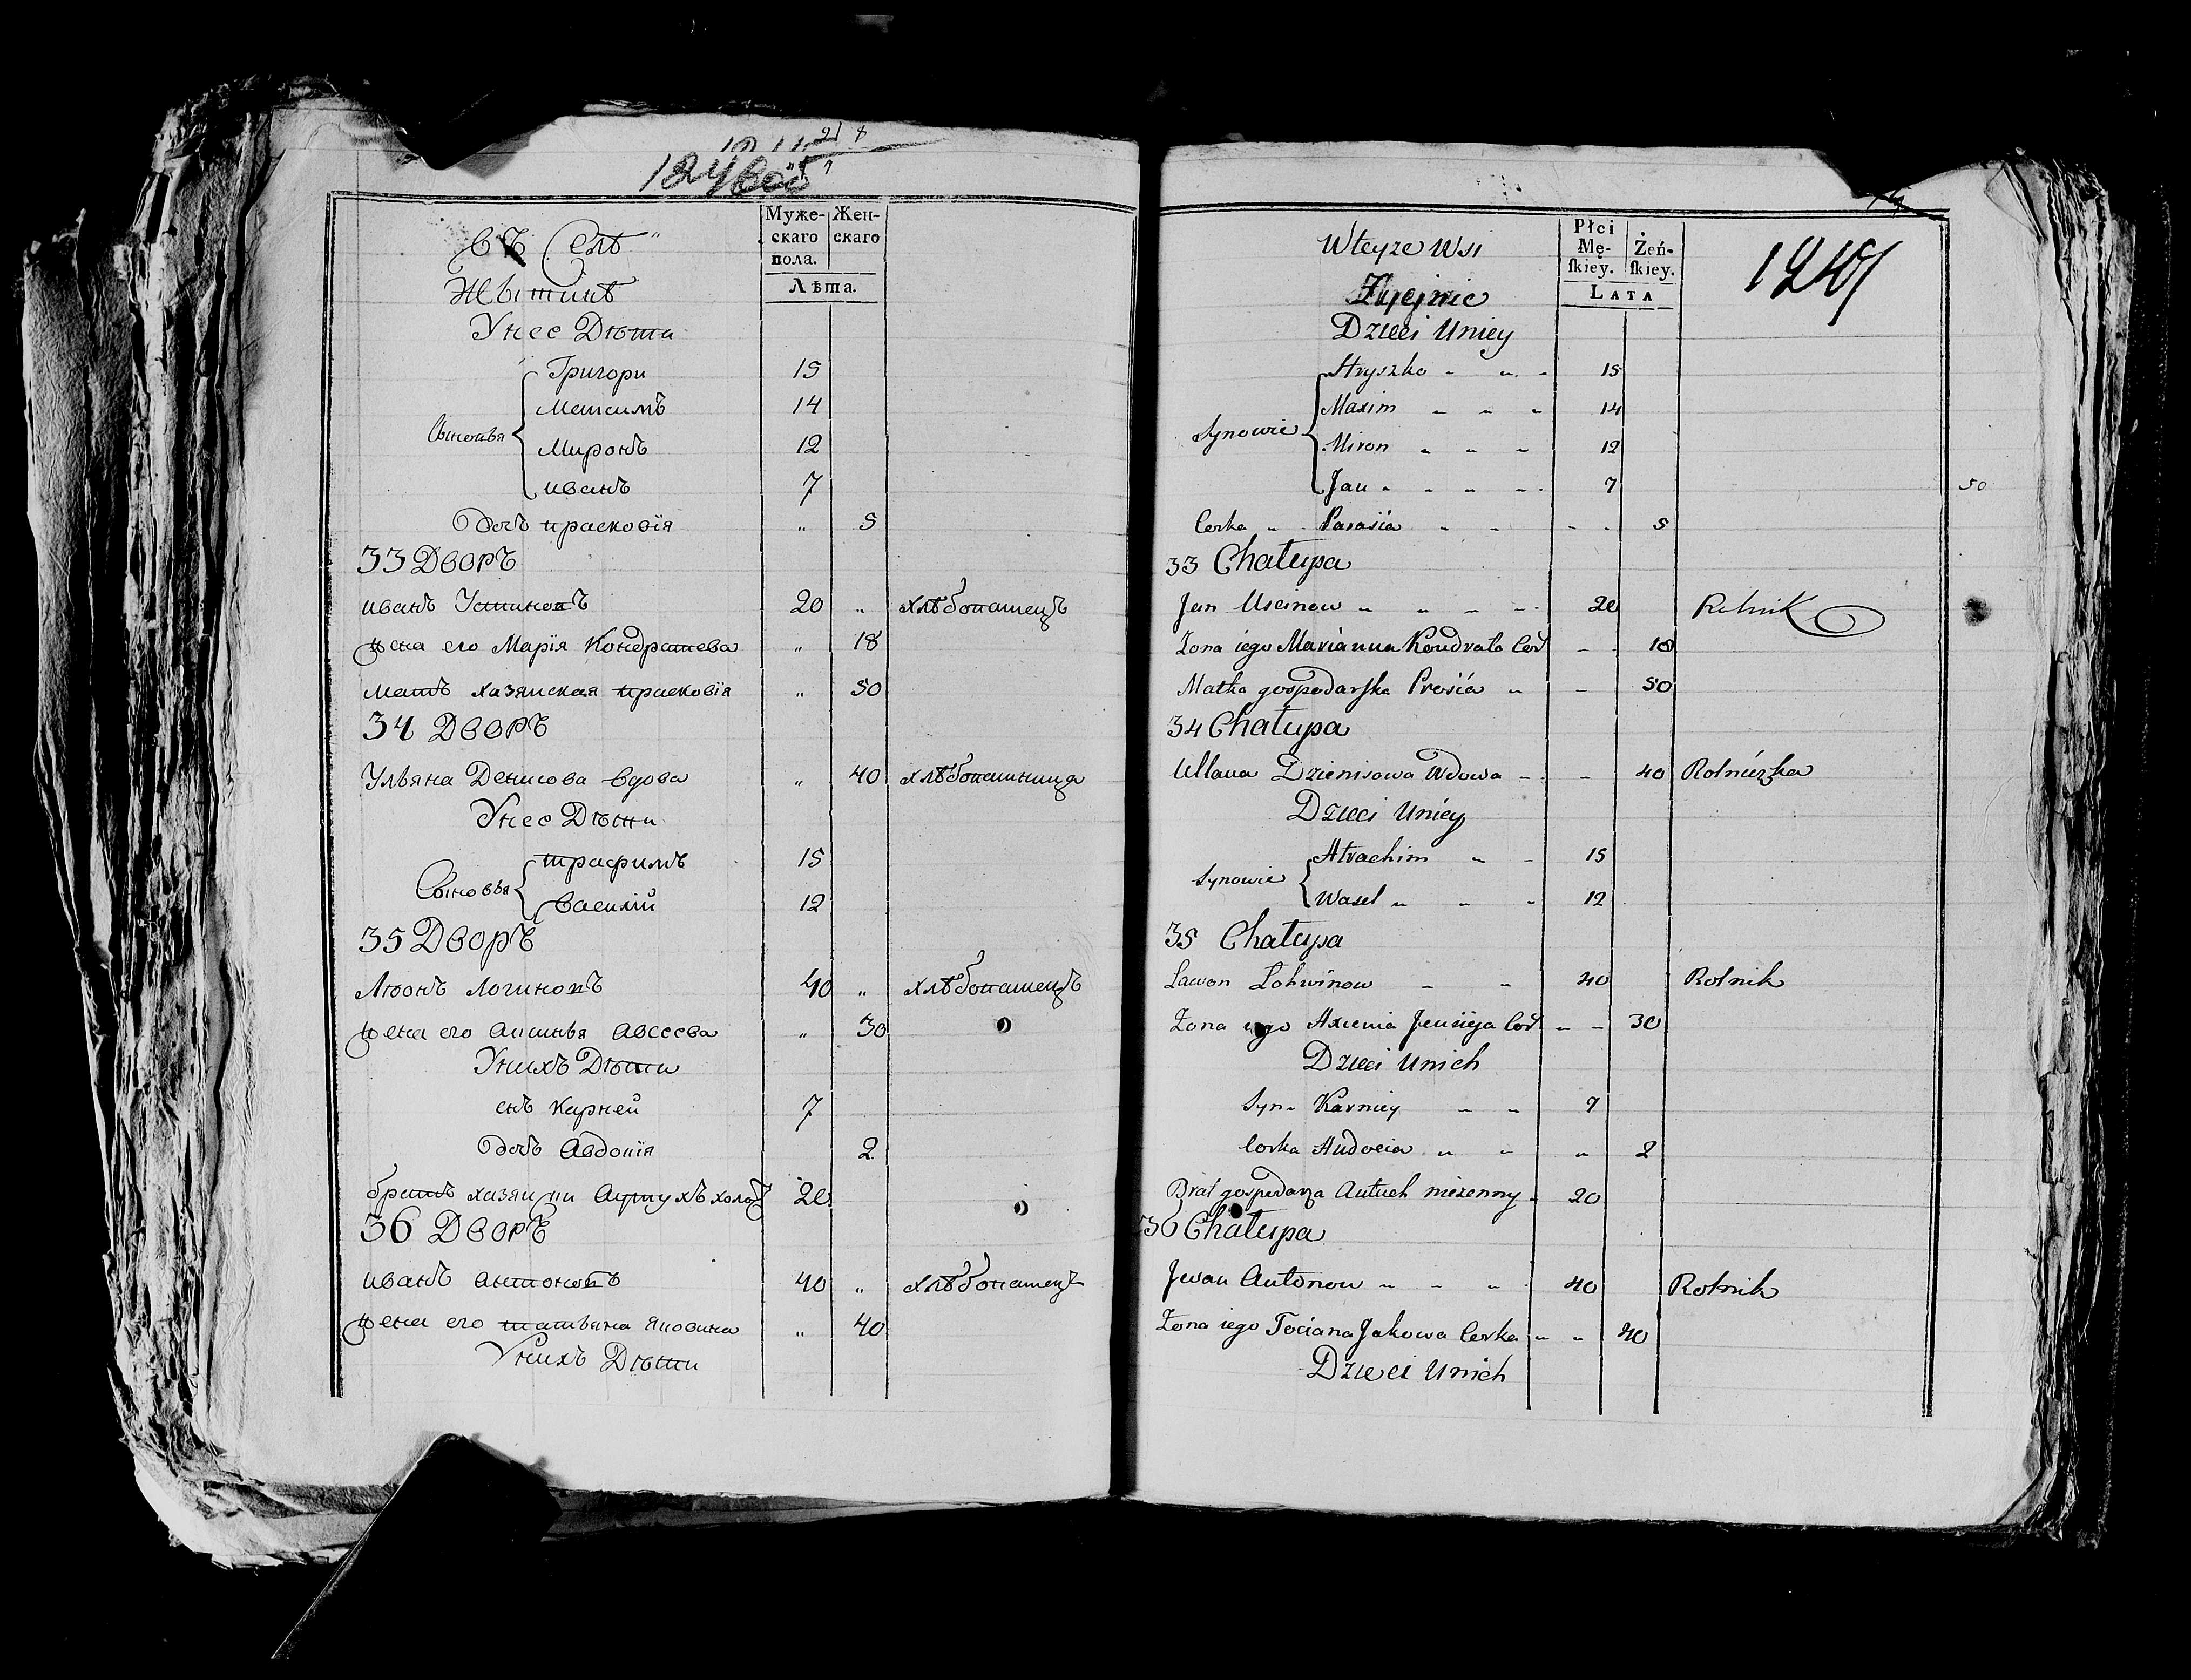 Муже-
скаго
пола.
Жен-
скаго
Лѣта.
Въ Селѣ
Жытинѣ
Унее Дѣти
Сыновья
Григори 15
Матсимъ 14
Миронъ 12
иванъ 7
Дочь прасковїя " 5
33 Дворъ
иванъ Устиновъ 20 " хлѣбопашецъ
жена его Марїя Кондратева " 18
мать хазяиская прасковїя " 50
34 Дворъ
Ульяна Денисова вдова " 40 хлѣбопашница
Унее Дѣти
Сыновья
трафимъ 15
василій 12
35 Дворъ
Логиновъ 40 " хлѣбопашецъ
жена его Авсеева " 30
Унихъ Дѣти
снъ Карней 7
Дочь Авдопїя 2
братъ хазяи 20
36 Дворъ
иванъ антоновъ 40 " хлѣбопашецъ
жена его татьяна Яковина " 40
Унихъ Дѣти
Płci
Mę-
ſkiey.
Żeń-
ſkiey.
LATA
Wteyze Wsi
Dzieci Uniey
Synowie
Hryszko 15
Maxim 14
Miron 12
Jan 7
50
Corka Parasia 5
33 Chałupa
Jan Uscinow 20 Rolnik
Zona iego Marianna Kondrata Cor 18
Matka gospodarſka Prosia 50
34 Chałupa
Ullana Dzienisowa Wdowa 40 Rolniczka
Dzieci Uniey
Synowie
Atrachim 15
Wasel 12
35 Chałupa
Lawon Lohwinow 40 Rolnik
Zona iego Axienia Cor 30
Dzieci Unich
Syn Karniey 7
Corka Audocia 2
Brat gospodarza Autuch niezenny 20
36 Chałupa
Jwan Antonow 40 Rolnik
Zona iego Taciana Jakowa Corka 40
Dzieci Unich